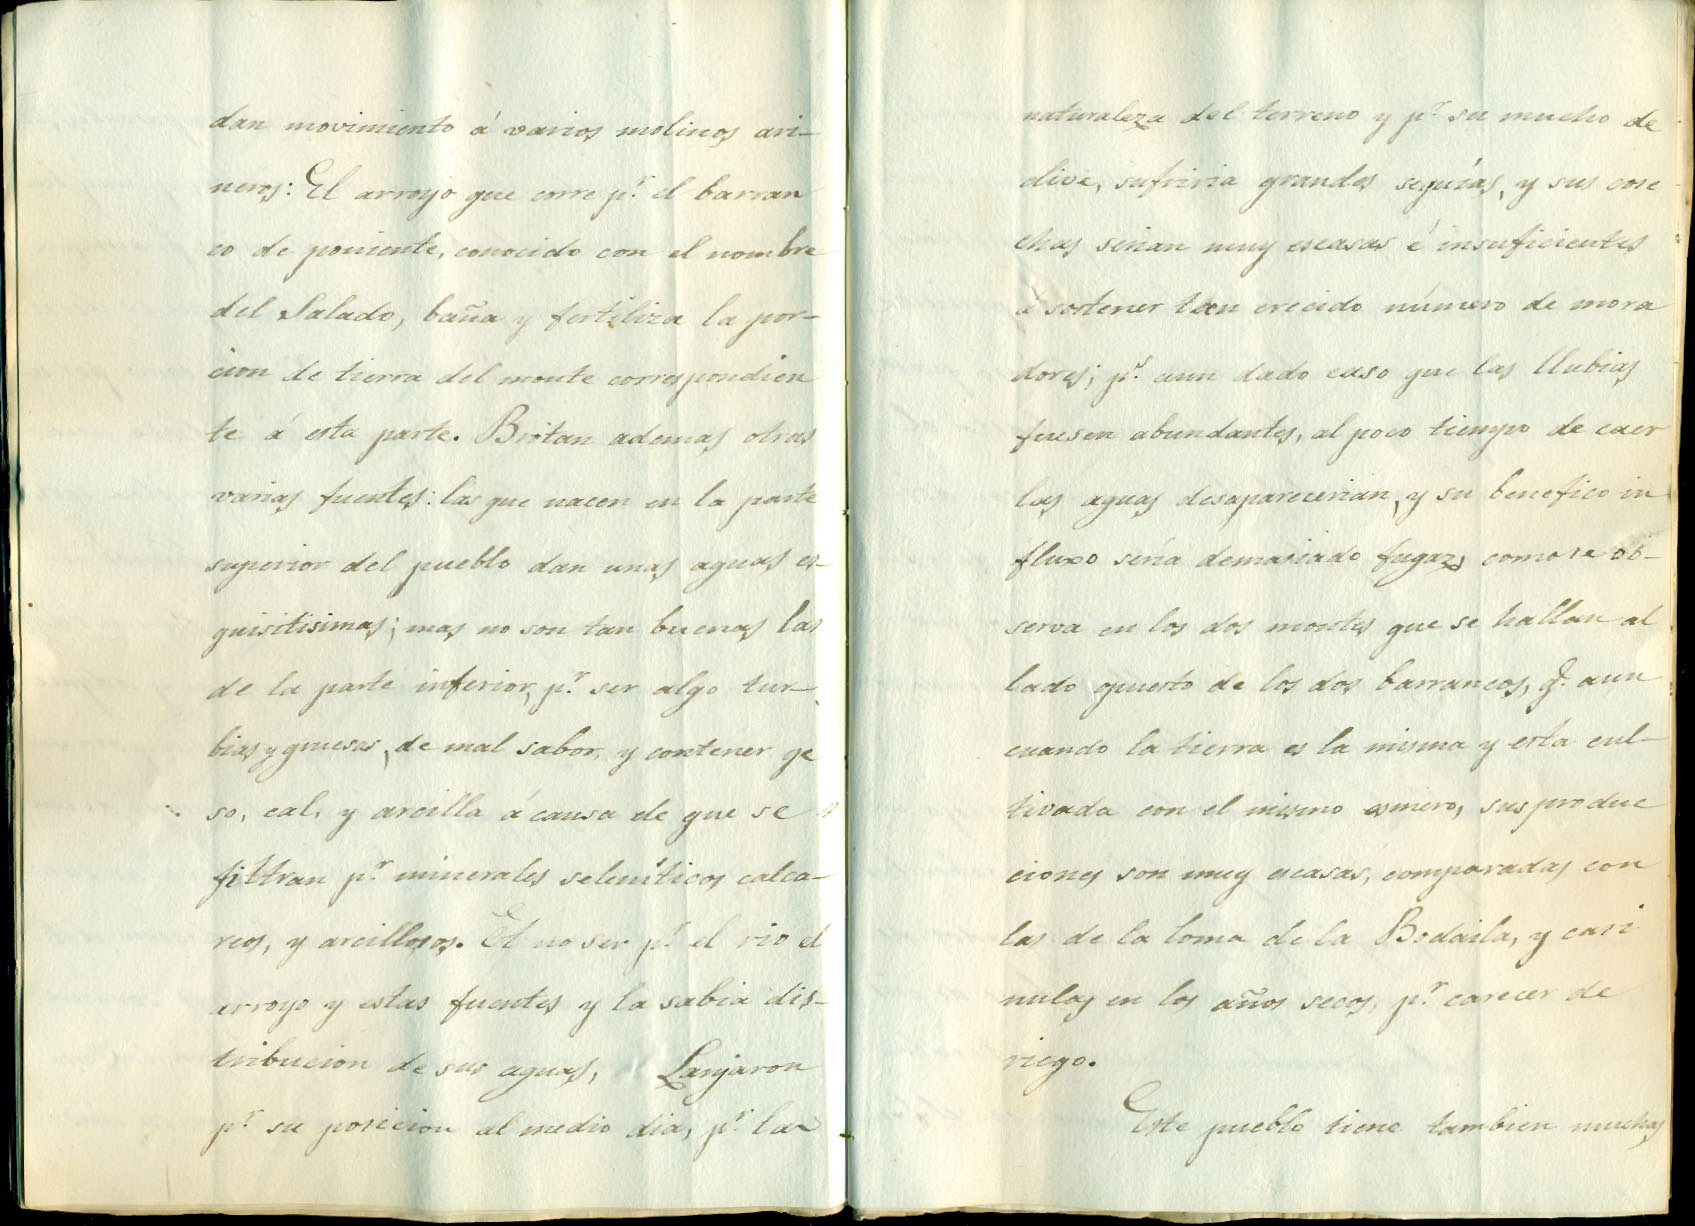 dan movimiento á varios molinos ari-
neros: El arroyo que corre p.r el barran
co de poniente, conocido con el nombre
del Salado, baña y fertiliza la por-
cion de tierra del monte correspondien
te á esta parte. Brotan ademas otras
varias fuentes: las que nacen en la parte
superior del pueblo dan unas aguas es-
quisitisimas; mas no son tan buenas las
de la parte inferior, p.r ser algo tur-
bias y gruesas, de mal sabor, y contener ye
so, cal, y arcilla á causa de que se
filtran p.r minerales seleníticos calca-
reos, y arcillosos. Et no ser p.r el rio el
arroyo y estas fuentes y la sabia dis-
tribucion de sus aguas, Lanjaron
p.r su posicion al medio dia, p.r la
naturaleza del terreno y p.r su mucho de
clive, sufriria grandes sequías, y sus cose
chas serian muy escasas é insuficientes
á sostener tan crecido número de mora
dores; p.s aun dado caso que las llubias
fuesen abundantes, al poco tiempo de caer
las aguas desaparecerian, y su benefico in
fluxo sería demasiado fugaz, como se ob-
serva en los dos montes que se hallan al
lado opuesto de los dos barrancos, q.e aun
cuando la tierra es la misma y esta cul-
tivada con el mismo esmero, sus produc
ciones son muy escasas, comparadas con
las de la loma de la Bodaila, y casi
nulas en los años secos, p.r carecer de
riego.
Este pueblo tiene tambien muchas